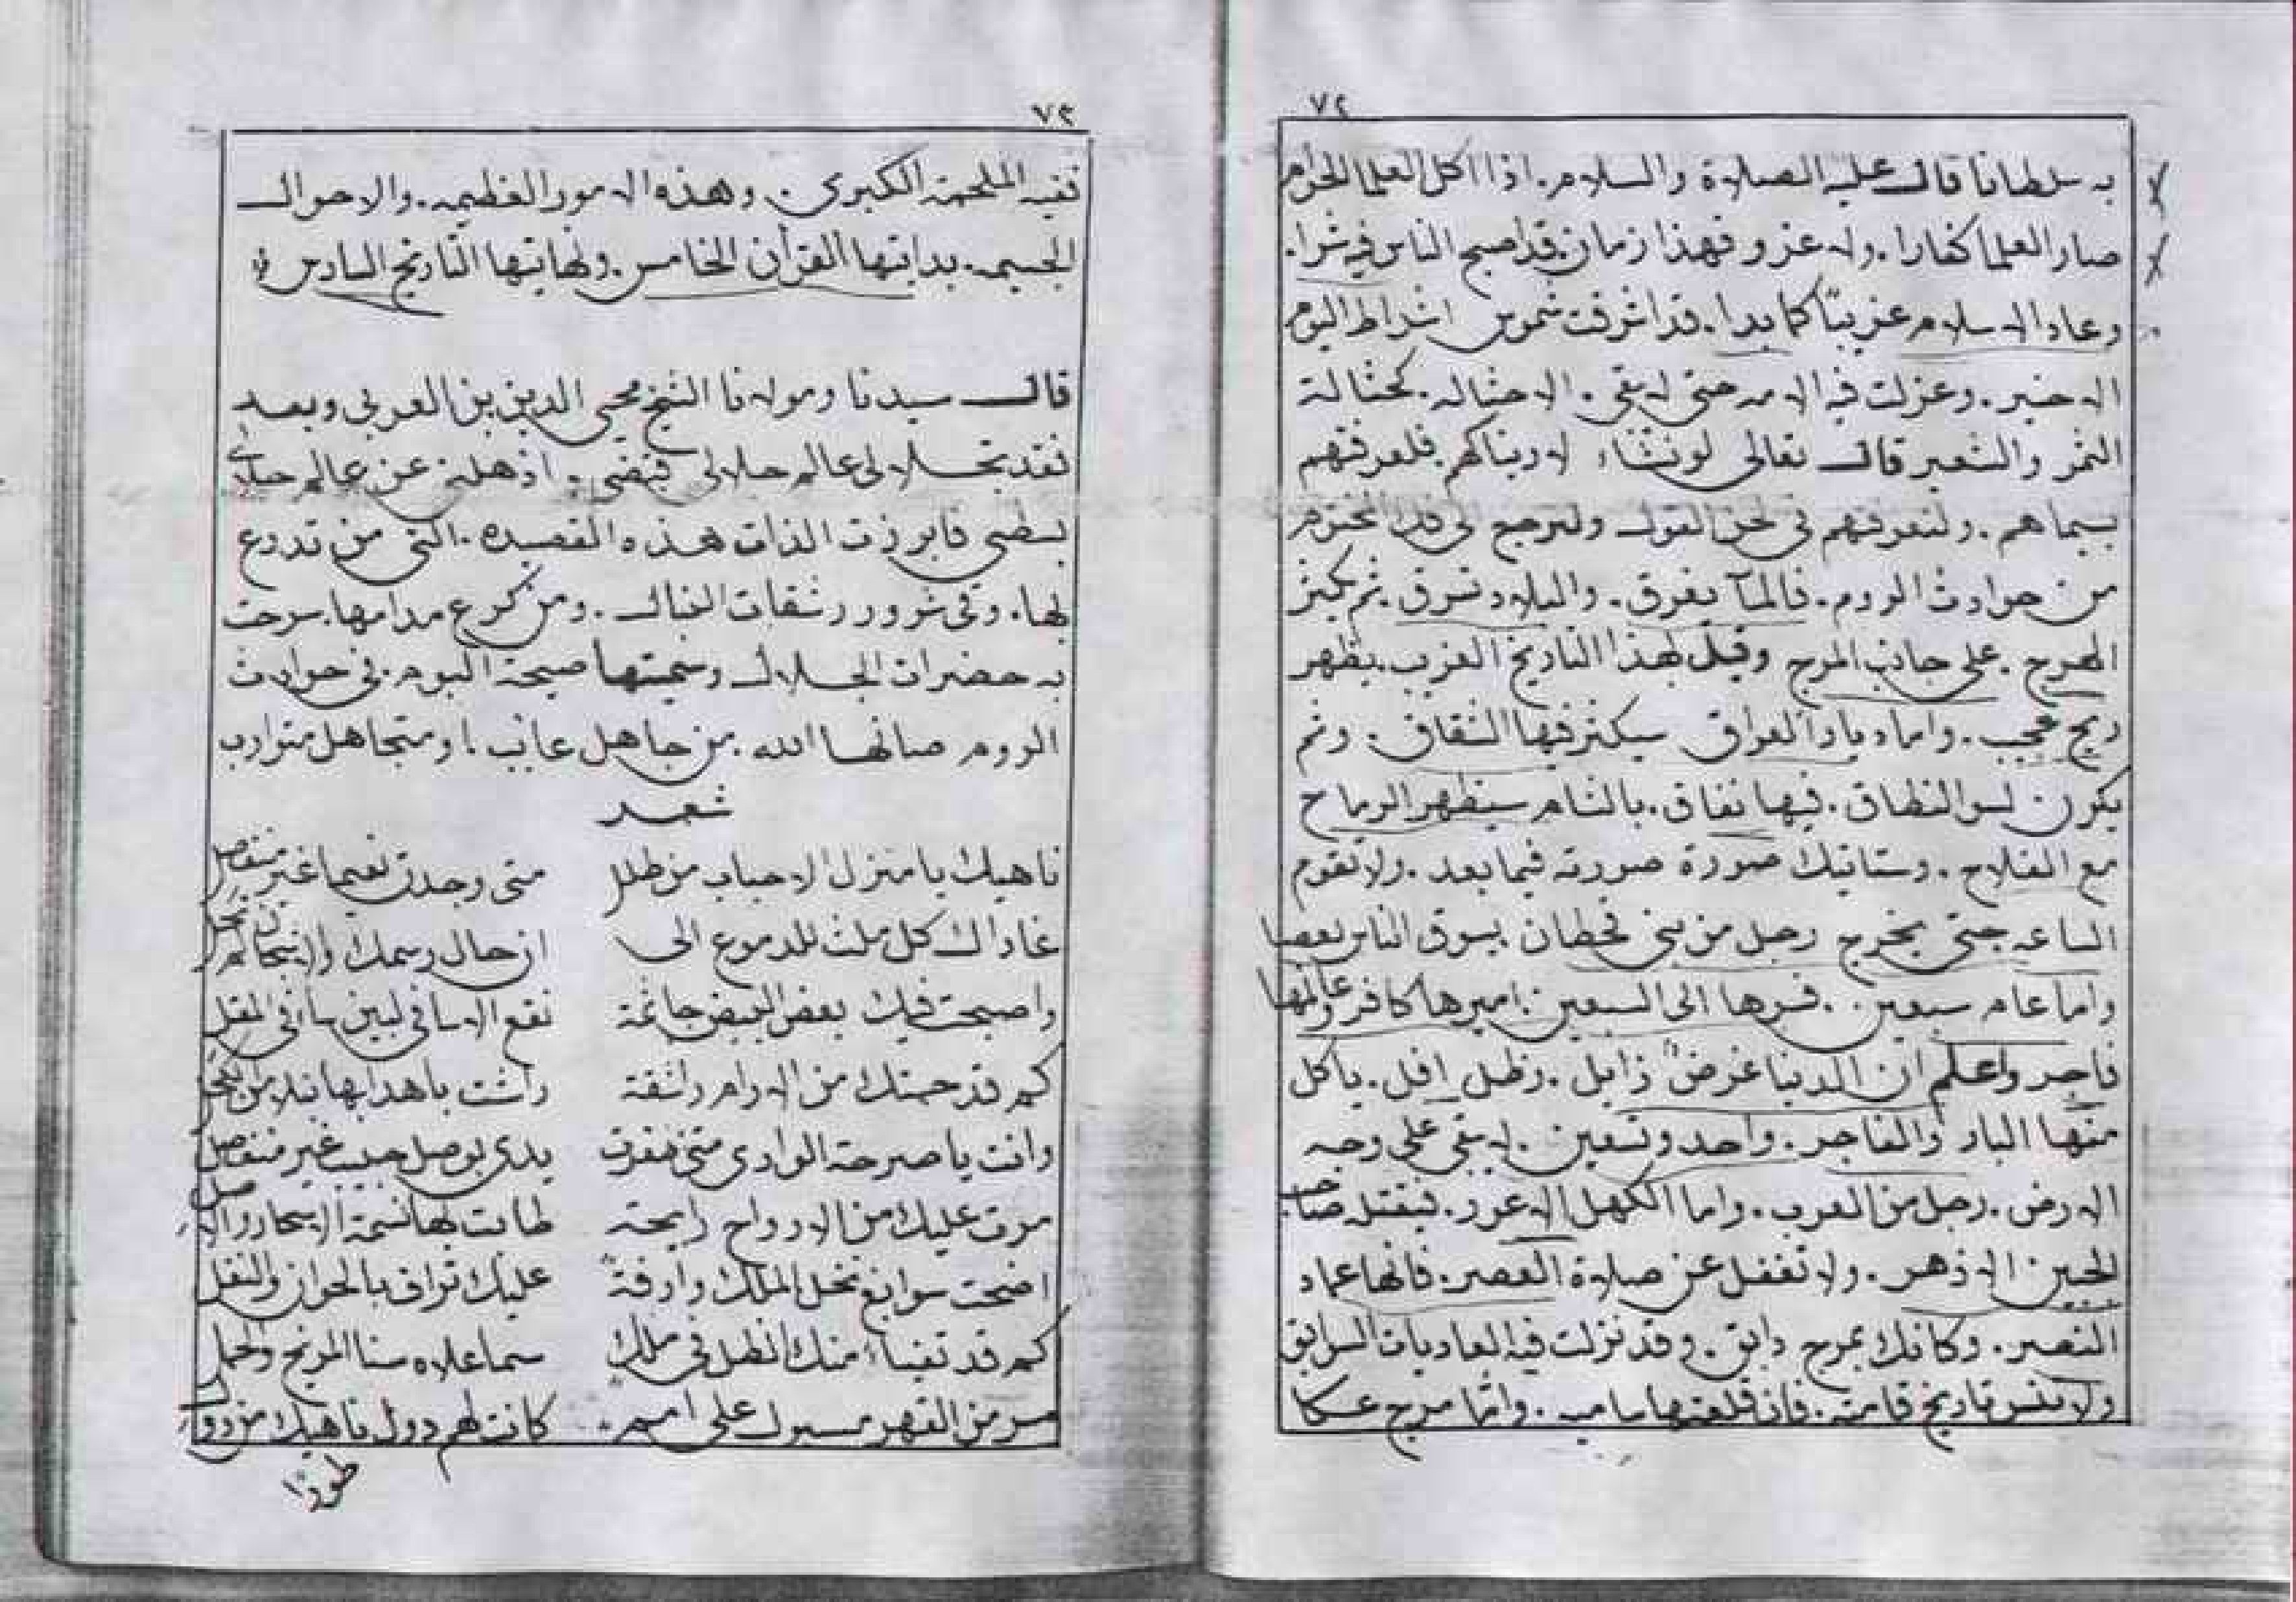 ٧٢
به سلطانا قال عليه الصلاة والسلام. اذا اكل العلما الحرام
صار العلما كفارا. ولا غرو فهذا زمان قد اصبح الناس فيه شرا.
وعاد الاسلام غريبًا كما بدا. قد اشرقت شموس اشراط اليوم
الاخير. وعزلت فيه الامه حتى لا يبقى. الا حثاله. كحثالة
التمر والشعير قال تعالى لو نشاء لاريناكهم فلعرفتهم
بسيماهم. ولتعرفنهم في لحن القول ولنرجع لى
من حوادث الروم. فالمآ يغرق. والبلاد تسرق. ثم يكثر
الهرج. على جانب المرج وقيل لهذا التاريخ الغريب يظهر
ريح عجيب. واما ديار العراق سيكثر فيها الشقاق. وثم
يكون لسو النطاق. فيها نفاق. بالشام سيظهر الرماح
مع الفلاح. وستاتيك صورة صورته فيما بعد. ولا تقوم
الساعه حتى يخرج رجل من بني قحطان يسوق الناس بعصا
واما عام سبعين. الى السبعين. اميرها كافر وعالمها
فاجر واعلم ان الدنيا عرض زايل. وظل افل. ياكل
منها البار والفاجر. واحد وتسعين. لا يبقى على وجه
الارض. رجل من العرب. واما الكهل الاعور. فيقتل صاحب
الجبين الازهر. ولا تغفل عن صلاة العصر. فانها عماد
النصر. وكانك بمرج دابق. وقد نزلت فيه العاديات السوابق
ولا تنس تاريخ قامته. فان قلعتها سامب. وانما مرج عكا
٧٣
نفيه الملحمة الكبرى. وهذه الامور العظيمه. والاحوال
الجسيمه. بدايتها القرآن الخامس. ونهايتها التاريخ السادس
قال سيدنا ومولانا الشيخ محيي الدين بن العربي وبعد
فقد تجلا لى عالم جلالى اذهلنى عن عالم
بسطى فابرزت الذات هذه القصيده. التى من تدرع
لها. وقى شرور رشقات النبال. ومن كرع مدامها. سرحت
به حضرات الجلال وسميتها صيحة البوم. في حوادث
الروم صانها الله من جاهل عايب. او متجاهل متوارب
شعر
ناهيك يا منزل الاحباب من طلل متى وجدت نعيما غير منفصل
غاداك كل ملث للدموع الى ان حال رسمك
واصبحت فيك بعض البيض جاثمة
كم قد حمتك من الارام راشقة واشت باهدابها
وانت يا صرحة الوادى متى ظفرت يدى بوصل حبيب غير منفصل
مرت عليك من الارواح رايحة طابت بها نسمة الاسحار والاصل
اضحت سوابغ نخل الملك وارفة عليك
كم قد تفيا منك الظل فى ملك سما علاه سنا المريخ والحمل
من القهر على امم كانت لهم دول ناهيك من دول
طودا